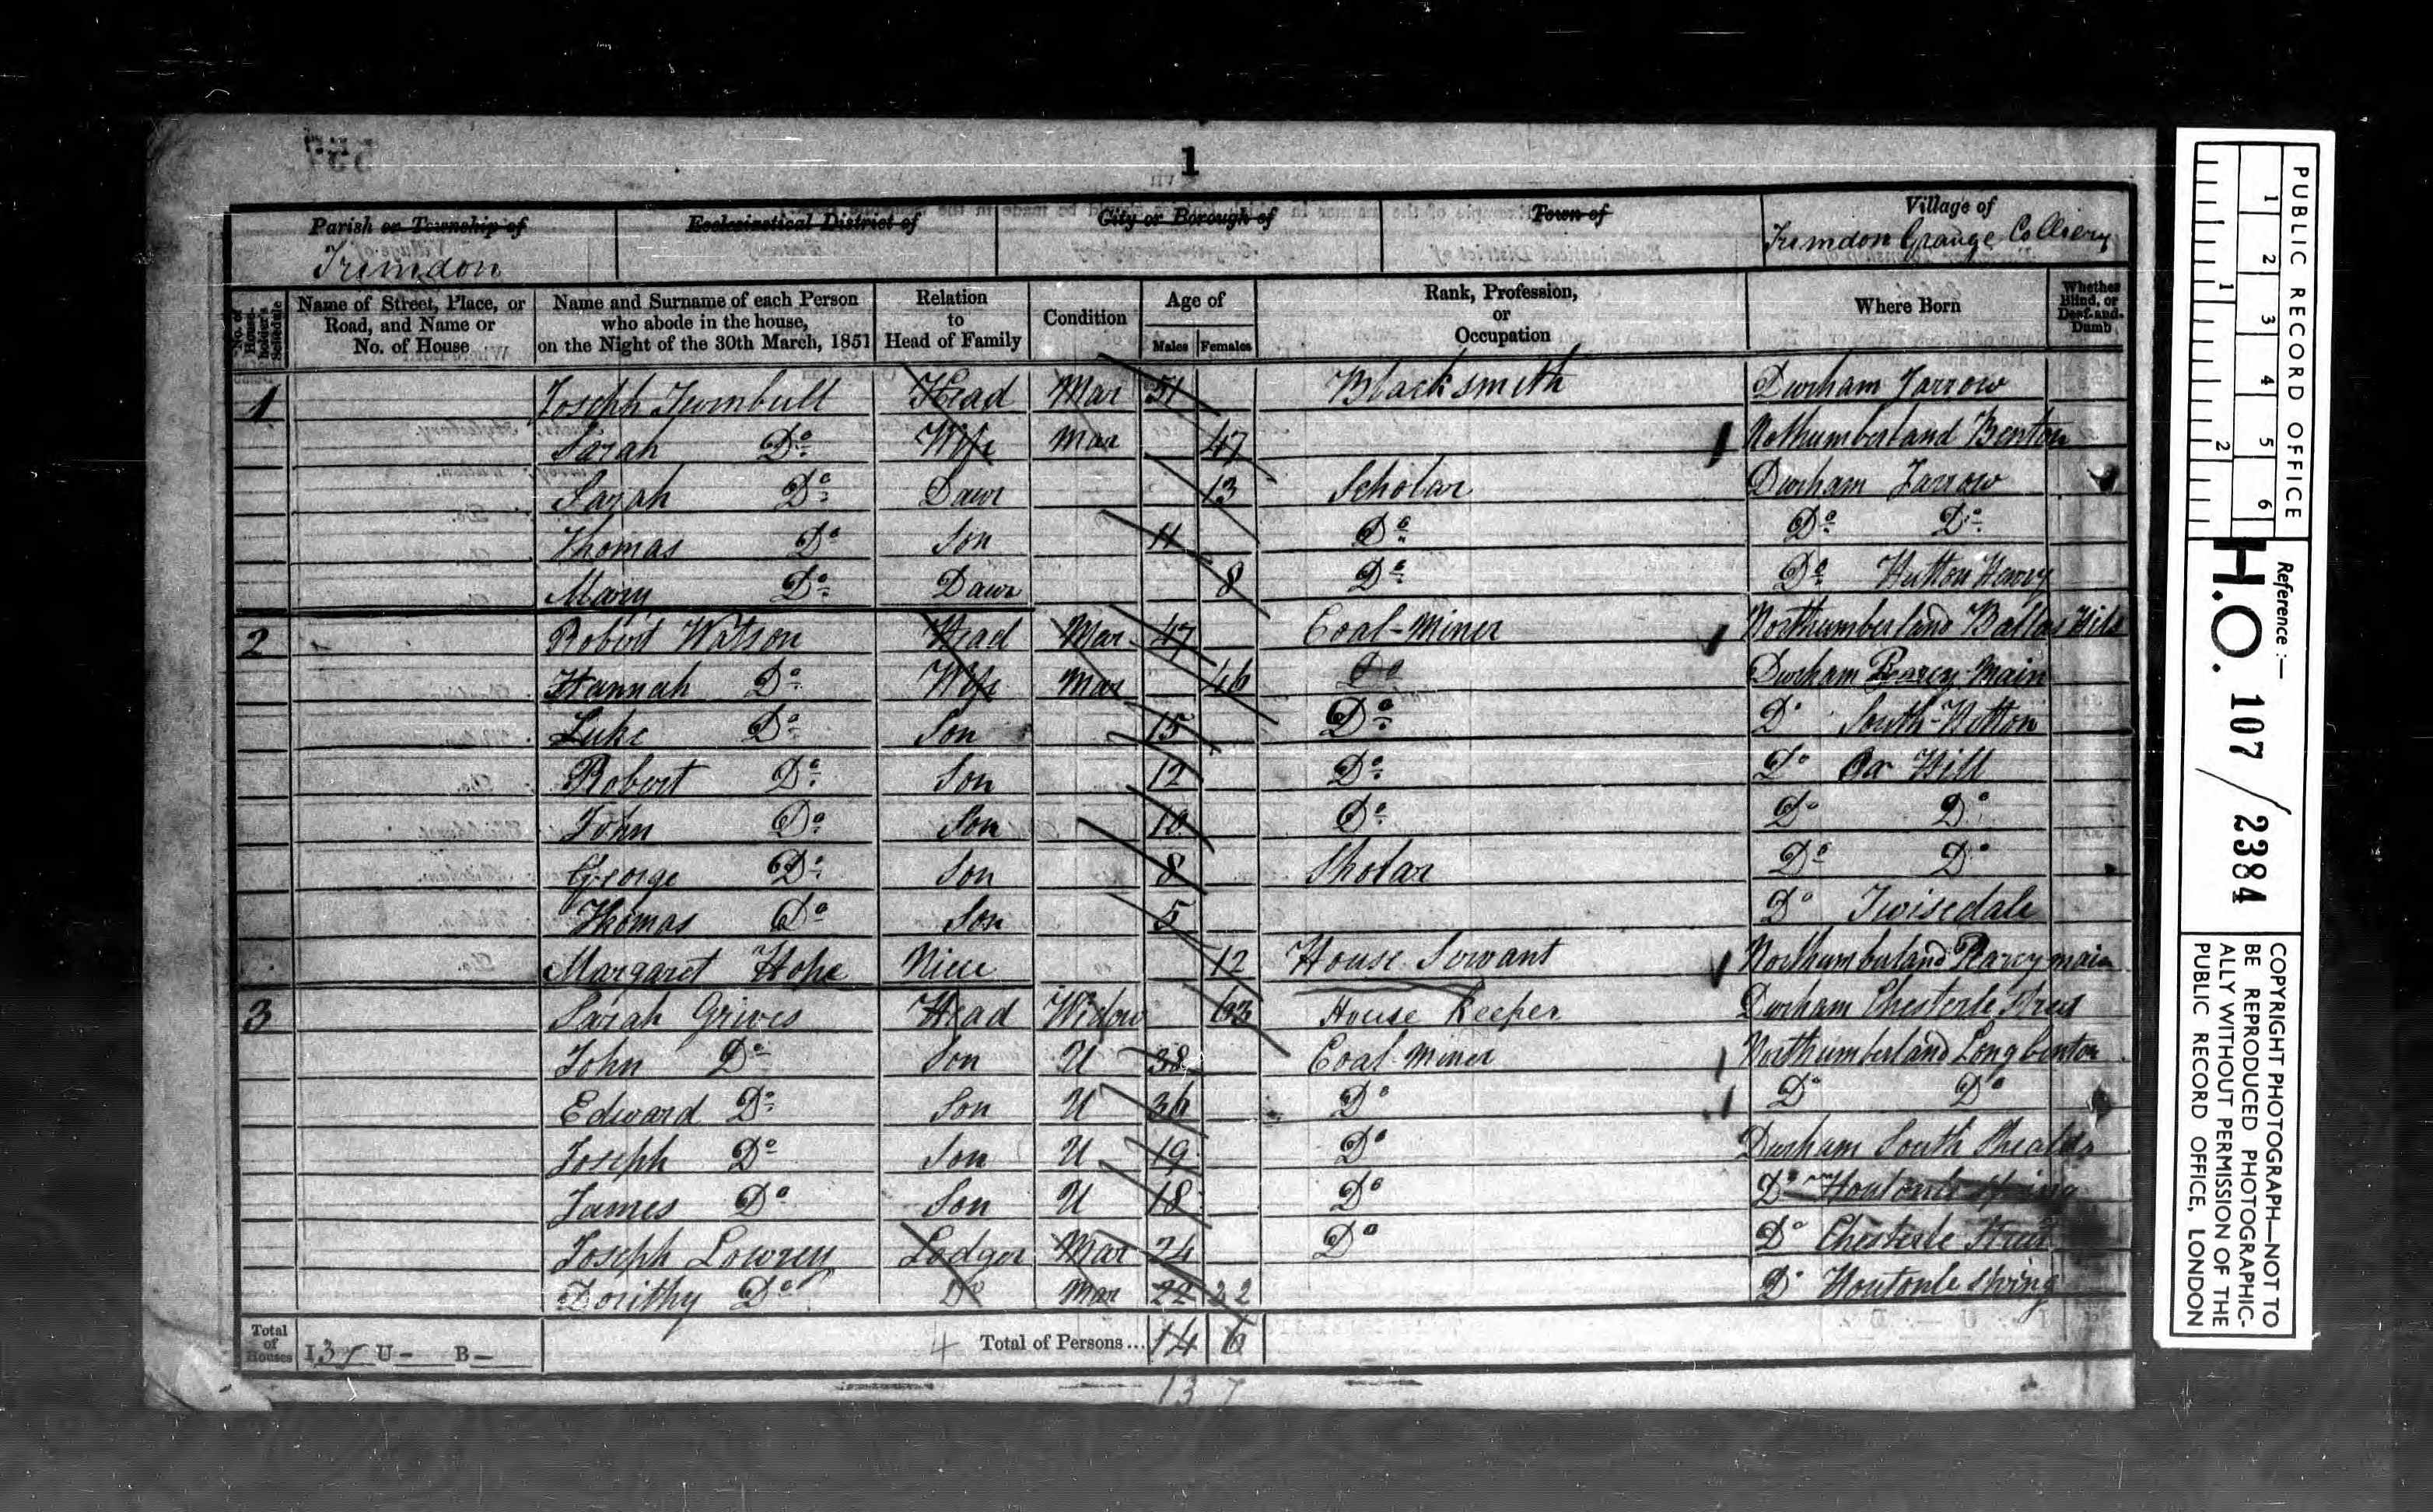 1
Parish or Township of
Ecclesiastical District of
City or Borough of
Town of
Village of
Trimdon
Trimdon Grange Colliery
No. of House-holder's Schedule
Name of Street, Place, or Road, and Name or No. of House
Name and Surname of each Person who abode in the house, on the Night of the 30th March, 1851
Relation to Head of Family
Condition
Age of
Males Females
Rank, Profession, or Occupation
Where Born
Whether Blind, or Deaf-and-Dumb
1 Joseph Turnbull Head Mar 51 Blacksmith Durham Jarrow
Sarah Do Wife Mar 47 Nothumberland Benton
Sarah Do Dawr 13 Scholar Durham Jarrow
Thomas Do Son 11 Do Do Do
Mary Do Dawr 8 Do Do Hutton Henry
2 Robert Watson Head Mar 47 Coal-Miner Northumberland Ballas Hill
Hannah Do Wife Mar 46 Do Durham Percy-Main
Luke Do Son 15 Do Do South-Hetton
Robert Do Son 12 Do Do Ox Hill
John Do Son 10 Do Do Do
George Do Son 8 Sholar Do Do
Thomas Do Son 5 Do Twisedale
Margaret Hope Niece 12 House Servant Northumberland Percymain
3 Sarah Grives Head Widow 63 House Keeper Durham Chesterle Street
John Do Son U 38 Coal-Miner Northumberland Longbenton
Edward Do Son U 36 Do Do Do
Joseph Do Son U 19 Do Durham South Shealds
James Do Son U 18 Do Do Houtonle Spring
Joseph Lowren Lodger Mar 24 Do Do Chesterle Street
Dorithy Do Do Mar 22 22 Do Houtonle Spring
Total of Houses I 3 U - B -
4 Total of Persons... 14 6
13 7
PUBLIC RECORD OFFICE
1 2 3 4 5 6
1 2
Reference:-
H.O. 107 / 2384
COPYRIGHT PHOTOGRAPH—NOT TO
BE REPRODUCED PHOTOGRAPHIC-
ALLY WITHOUT PERMISSION OF THE
PUBLIC RECORD OFFICE, LONDON